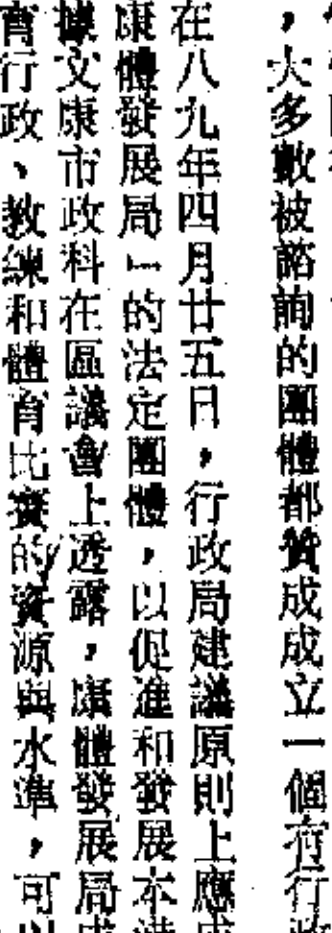 ，大多數被諮詢的團體都贊成成立一個有行政
在八九年四月廿五日，行政局建議原則上應成
康體發展局」的法定團體，以促進和發展本港
據文康市政科在區議會上透露，康體發展局成
育行政、教練和體育比賽的資源與水準，可以